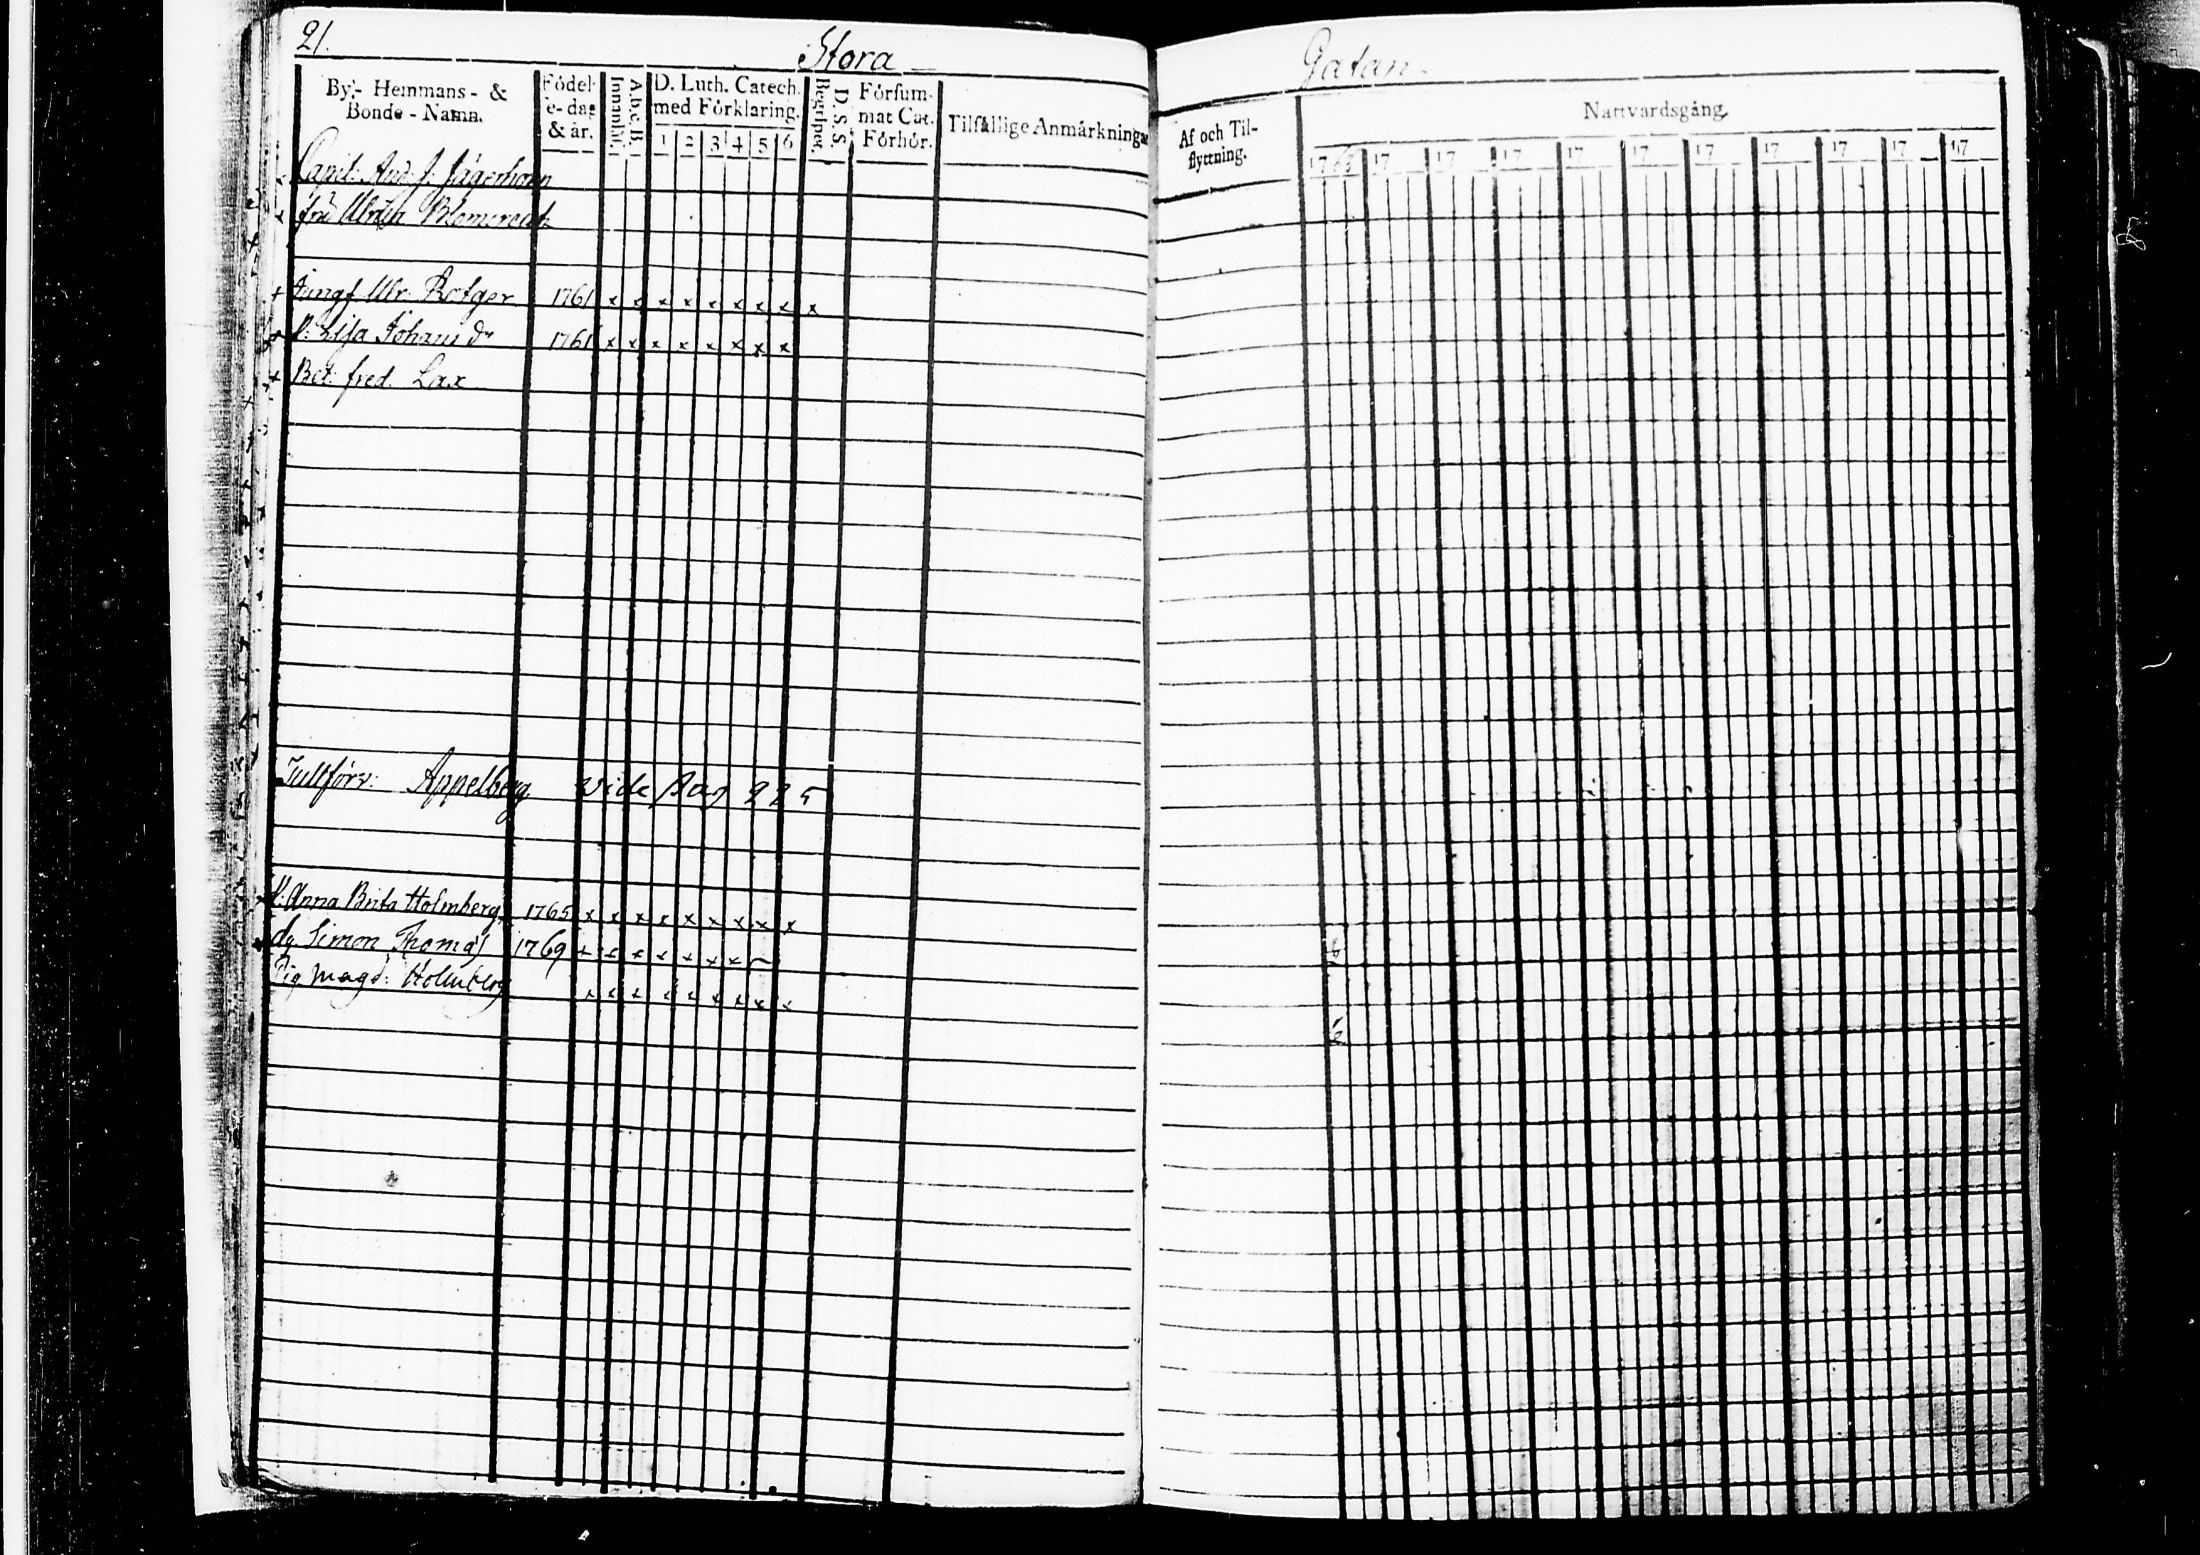 21.
Stora
Gatan
By- Hemmans- &
Bonde-Namn.
Födel-
se-dag
& år.
A.b.c.B.
Innanläs.
D. Luth. Catech.
med Förklaring.
1 2 3 4 5 6
D. S. S.
Begriper.
Försum-
mat Cat.
Förhör.
Tilfällige Anmärkningar
Af och Til-
flyttning.
Nattvardsgång.
17 17 17 17 17 17 17 17 17 17 17
x Capit: And: J. Jägerhorn
x fru Ulrica
+ Jungf Ulr. Rotger 1761 x x x x x x x x x
Johans dr 1761 x x x x x x x x
+ Bet: fred. Lax
Tullförv: Appelberg vide pag 225
x P: Anna Brita Holmberg 1765 x x x x x x x x x
dg Simon Thomas 1769 x x x x x x x
Pig Magd: Hollnberg x x x x x x x x x